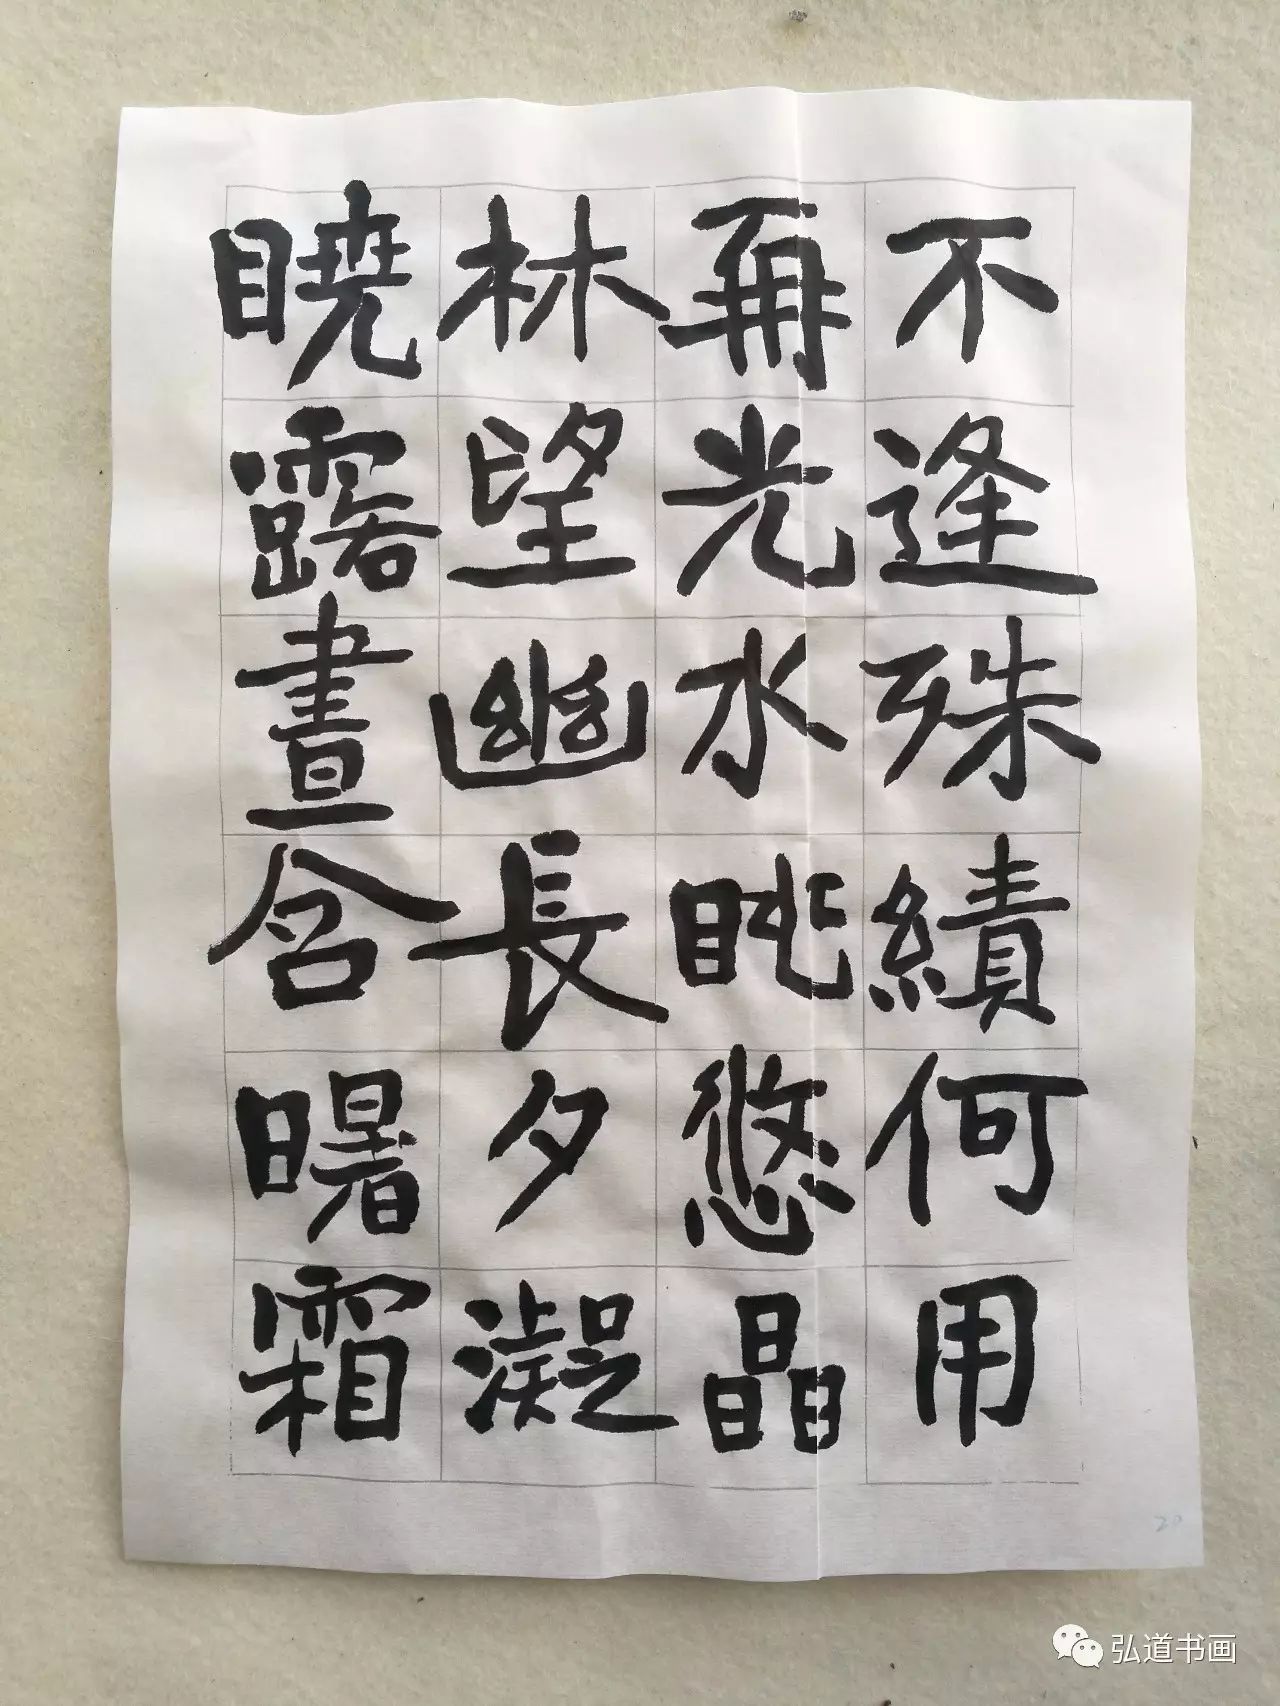 不逢殊績何用
再光水眺悠晶
林望幽長夕凝
曉露晝含曙霜
20
弘道书画